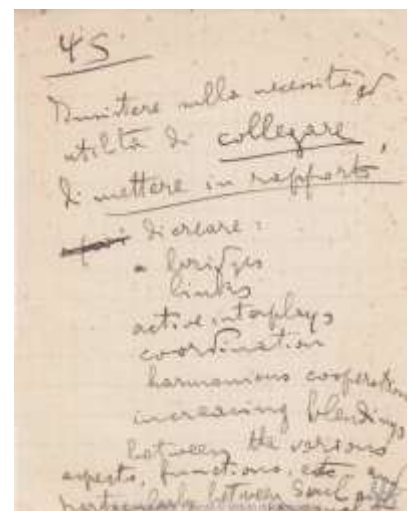 ΨS.
Insistere sulla necessità ed
utilità di collegare,
di mettere in rapporto,
di creare:
bridges
links
active interplays
coordination
harmonious cooperation
increasing blendings
between the various
aspects, functions, etc and
particularly between Soul and